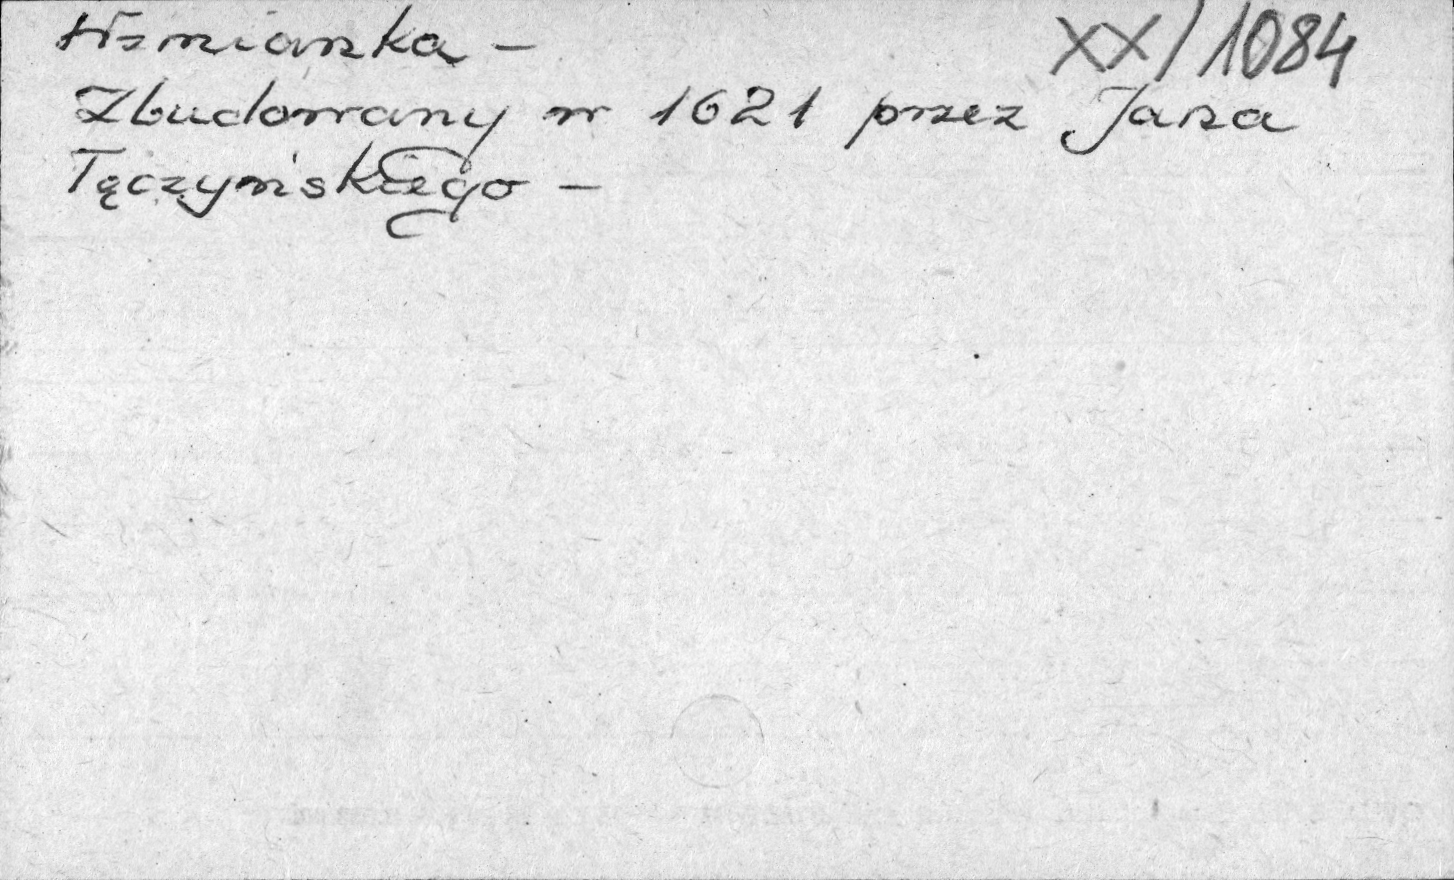 Wzmianka – XX/1084
Zbudowany w 1621 przez Jana
Tęczyńskiego –